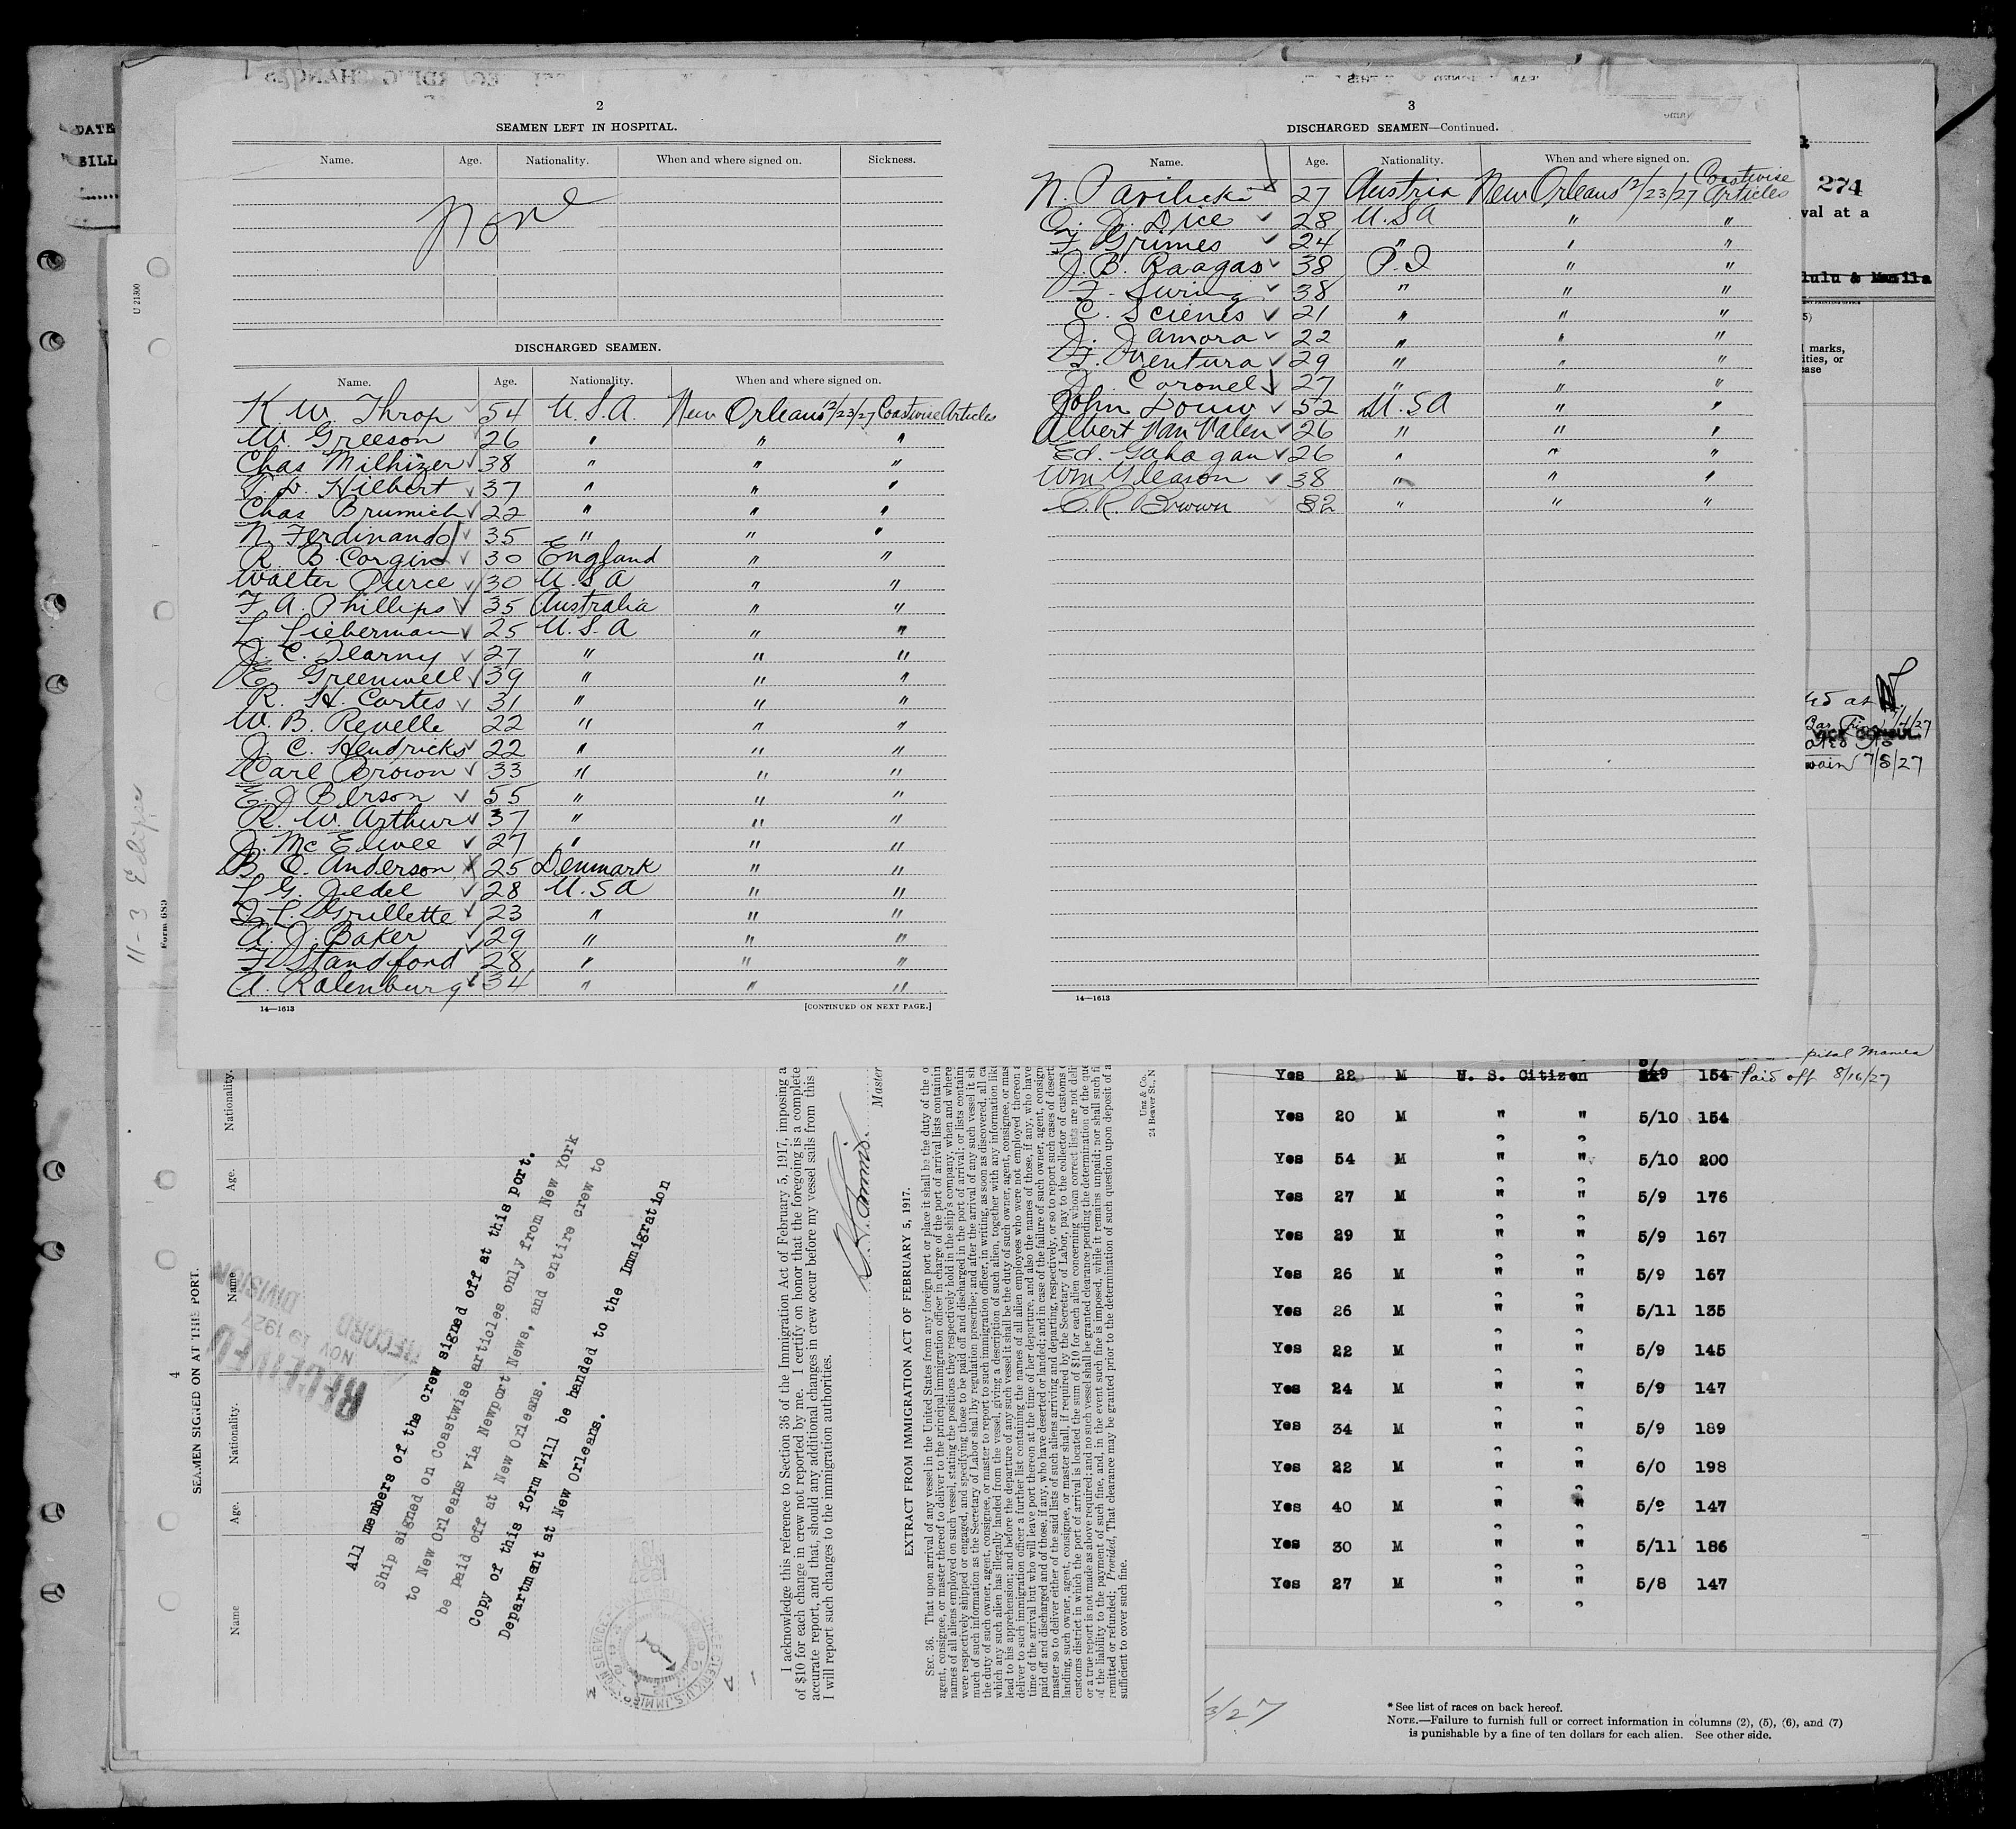 2
SEAMEN LEFT IN HOSPITAL.
Name. Age. Nationality. When and where signed on. Sickness.
None
DISCHARGED SEAMEN.
Name. Age. Nationality. When and where signed on.
K. W. Throp 54 U.S.A. New Orleans 12/23/27 Coastwise Articles
W. Greeson 26 " " "
Chas Milhizer 38 " " "
T. L. Hilbert 37 " " "
Chas Brumich 22 " " "
N. Ferdinando 35 " " "
R. B. Corgin 30 England " "
Walter Purce 30 U.S.A " "
F. A. Phillips 35 Australia " "
L. Lieberman 25 U.S.A " "
J. C. Tearny 27 " " "
E. Greenwell 39 " " "
R. H. Cortes 31 " " "
W. B. Revelle 22 " " "
J. C. Hendricks 22 " " "
Carl Brown 33 " " "
E. J. Berson 55 " " "
R. W. Arthur 37 " " "
J. Mc Elwee 27 " " "
B. C. Anderson 25 Denmark " "
L. G. Jedel 28 U.S.A " "
J. L. Grillette 23 " " "
A. J. Baker 29 " " "
F. Standford 28 " " "
A. Ralenburg 34 " " "
14—1613 [CONTINUED ON NEXT PAGE.]
3
DISCHARGED SEAMEN—Continued.
Name. Age. Nationality. When and where signed on.
N. 27 Austria New Orleans 12/23/27 Coastwise Articles
Dice 28 U.S.A " "
F. Grimes 24 " " "
J. B. Raagas 38 P.I " "
F. 38 " " "
C. Scienes 21 " " "
J. Jamora 22 " " "
F. Ventura 29 " " "
J. Coronel 27 " " "
John Douw 52 U.S.A " "
Albert Van Valen 26 " " "
Ed. Gahagan 26 " " "
Wm Gleason 38 " " "
C. R. Brown 32 " " "
14—1613
DATE
BILL
U 21300
11-3 Eclipse
Form 689
274
val at a
lulu & Manila
5)
marks,
ities, or
ease
VICE CONSUL.
7/8/27
4
SEAMEN SIGNED ON AT THE PORT.
Name Age. Nationality. Name Age. Nationality.
RECEIVED
NOV 19 1927
RECORD
DIVISION
All members of the crew signed off at this port.
Ship signed on Coastwise articles only from New York
to New Orleans via Newport News, and entire crew to
be paid off at New Orleans.
Copy of this form will be handed to the Immigration
Department at New Orleans.
I acknowledge this reference to Section 36 of the Immigration Act of February 5, 1917, imposing a
of $10 for each change in crew not reported by me. I certify on honor that the foregoing is a complete
accurate report, and that, should any additional changes in crew occur before my vessel sails from this
I will report such changes to the immigration authorities.
Master
EXTRACT FROM IMMIGRATION ACT OF FEBRUARY 5, 1917.
SEC. 36. That upon arrival of any vessel in the United States from any foreign port or place it shall be the duty of the
agent, consignee, or master thereof to deliver to the principal immigration officer in charge of the port of arrival lists containin
names of all aliens employed on such vessel, stating the positions they respectively hold in the ship's company, when and where
were respectively shipped or engaged, and specifying those to be paid off and discharged in the port of arrival; or lists containi
much of such information as the Secretary of Labor shall by regulation prescribe; and after the arrival of any such vessel it sh
the duty of such owner, agent, consignee, or master to report to such immigration officer, in writing, as soon as discovered, all ca
which any such alien has illegally landed from the vessel, giving a description of such alien, together with any information lik
lead to his apprehension; and before the departure of any such vessel it shall be the duty of such owner, agent, consignee, or mas
deliver to such immigration officer a further list containing the names of all alien employees who were not employed thereon a
time of the arrival but who will leave port thereon at the time of her departure, and also the names of those, if any, who have
paid off and discharged and of those, if any, who have deserted or landed; and in case of the failure of such owner, agent, consign
master so to deliver either of the said lists of such aliens arriving and departing, respectively, or so to report such cases of desert
landing, such owner, agent, consignee, or master shall, if required by the Secretary of Labor, pay to the collector of customs
customs district in which the port of arrival is located the sum of $10 for each alien concerning whom correct lists are not deli
or a true report is not made as above required; and no such vessel shall be granted clearance pending the determination of the que
of the liability to the payment of such fine, and, in the event such fine is imposed, while it remains unpaid; nor shall such fi
remitted or refunded: Provided, That clearance may be granted prior to the determination of such question upon deposit of a
sufficient to cover such fine.
Unz & Co.,
24 Beaver St., N
Hospital Manila
Yes 22 M U. S. Citizen 154 Paid off 8/16/27
Yes 20 M " " 5/10 154
Yes 54 M " " 5/10 200
Yes 27 M " " 5/9 176
Yes 29 M " " 5/9 167
Yes 26 M " " 5/9 167
Yes 26 M " " 5/11 135
Yes 22 M " " 5/9 145
Yes 24 M " " 5/9 147
Yes 34 M " " 5/9 189
Yes 22 M " " 6/0 198
Yes 40 M " " 5/9 147
Yes 30 M " " 5/11 186
Yes 27 M " " 5/8 147
3/27
* See list of races on back hereof.
NOTE.—Failure to furnish full or correct information in columns (2), (5), (6), and (7)
is punishable by a fine of ten dollars for each alien. See other side.